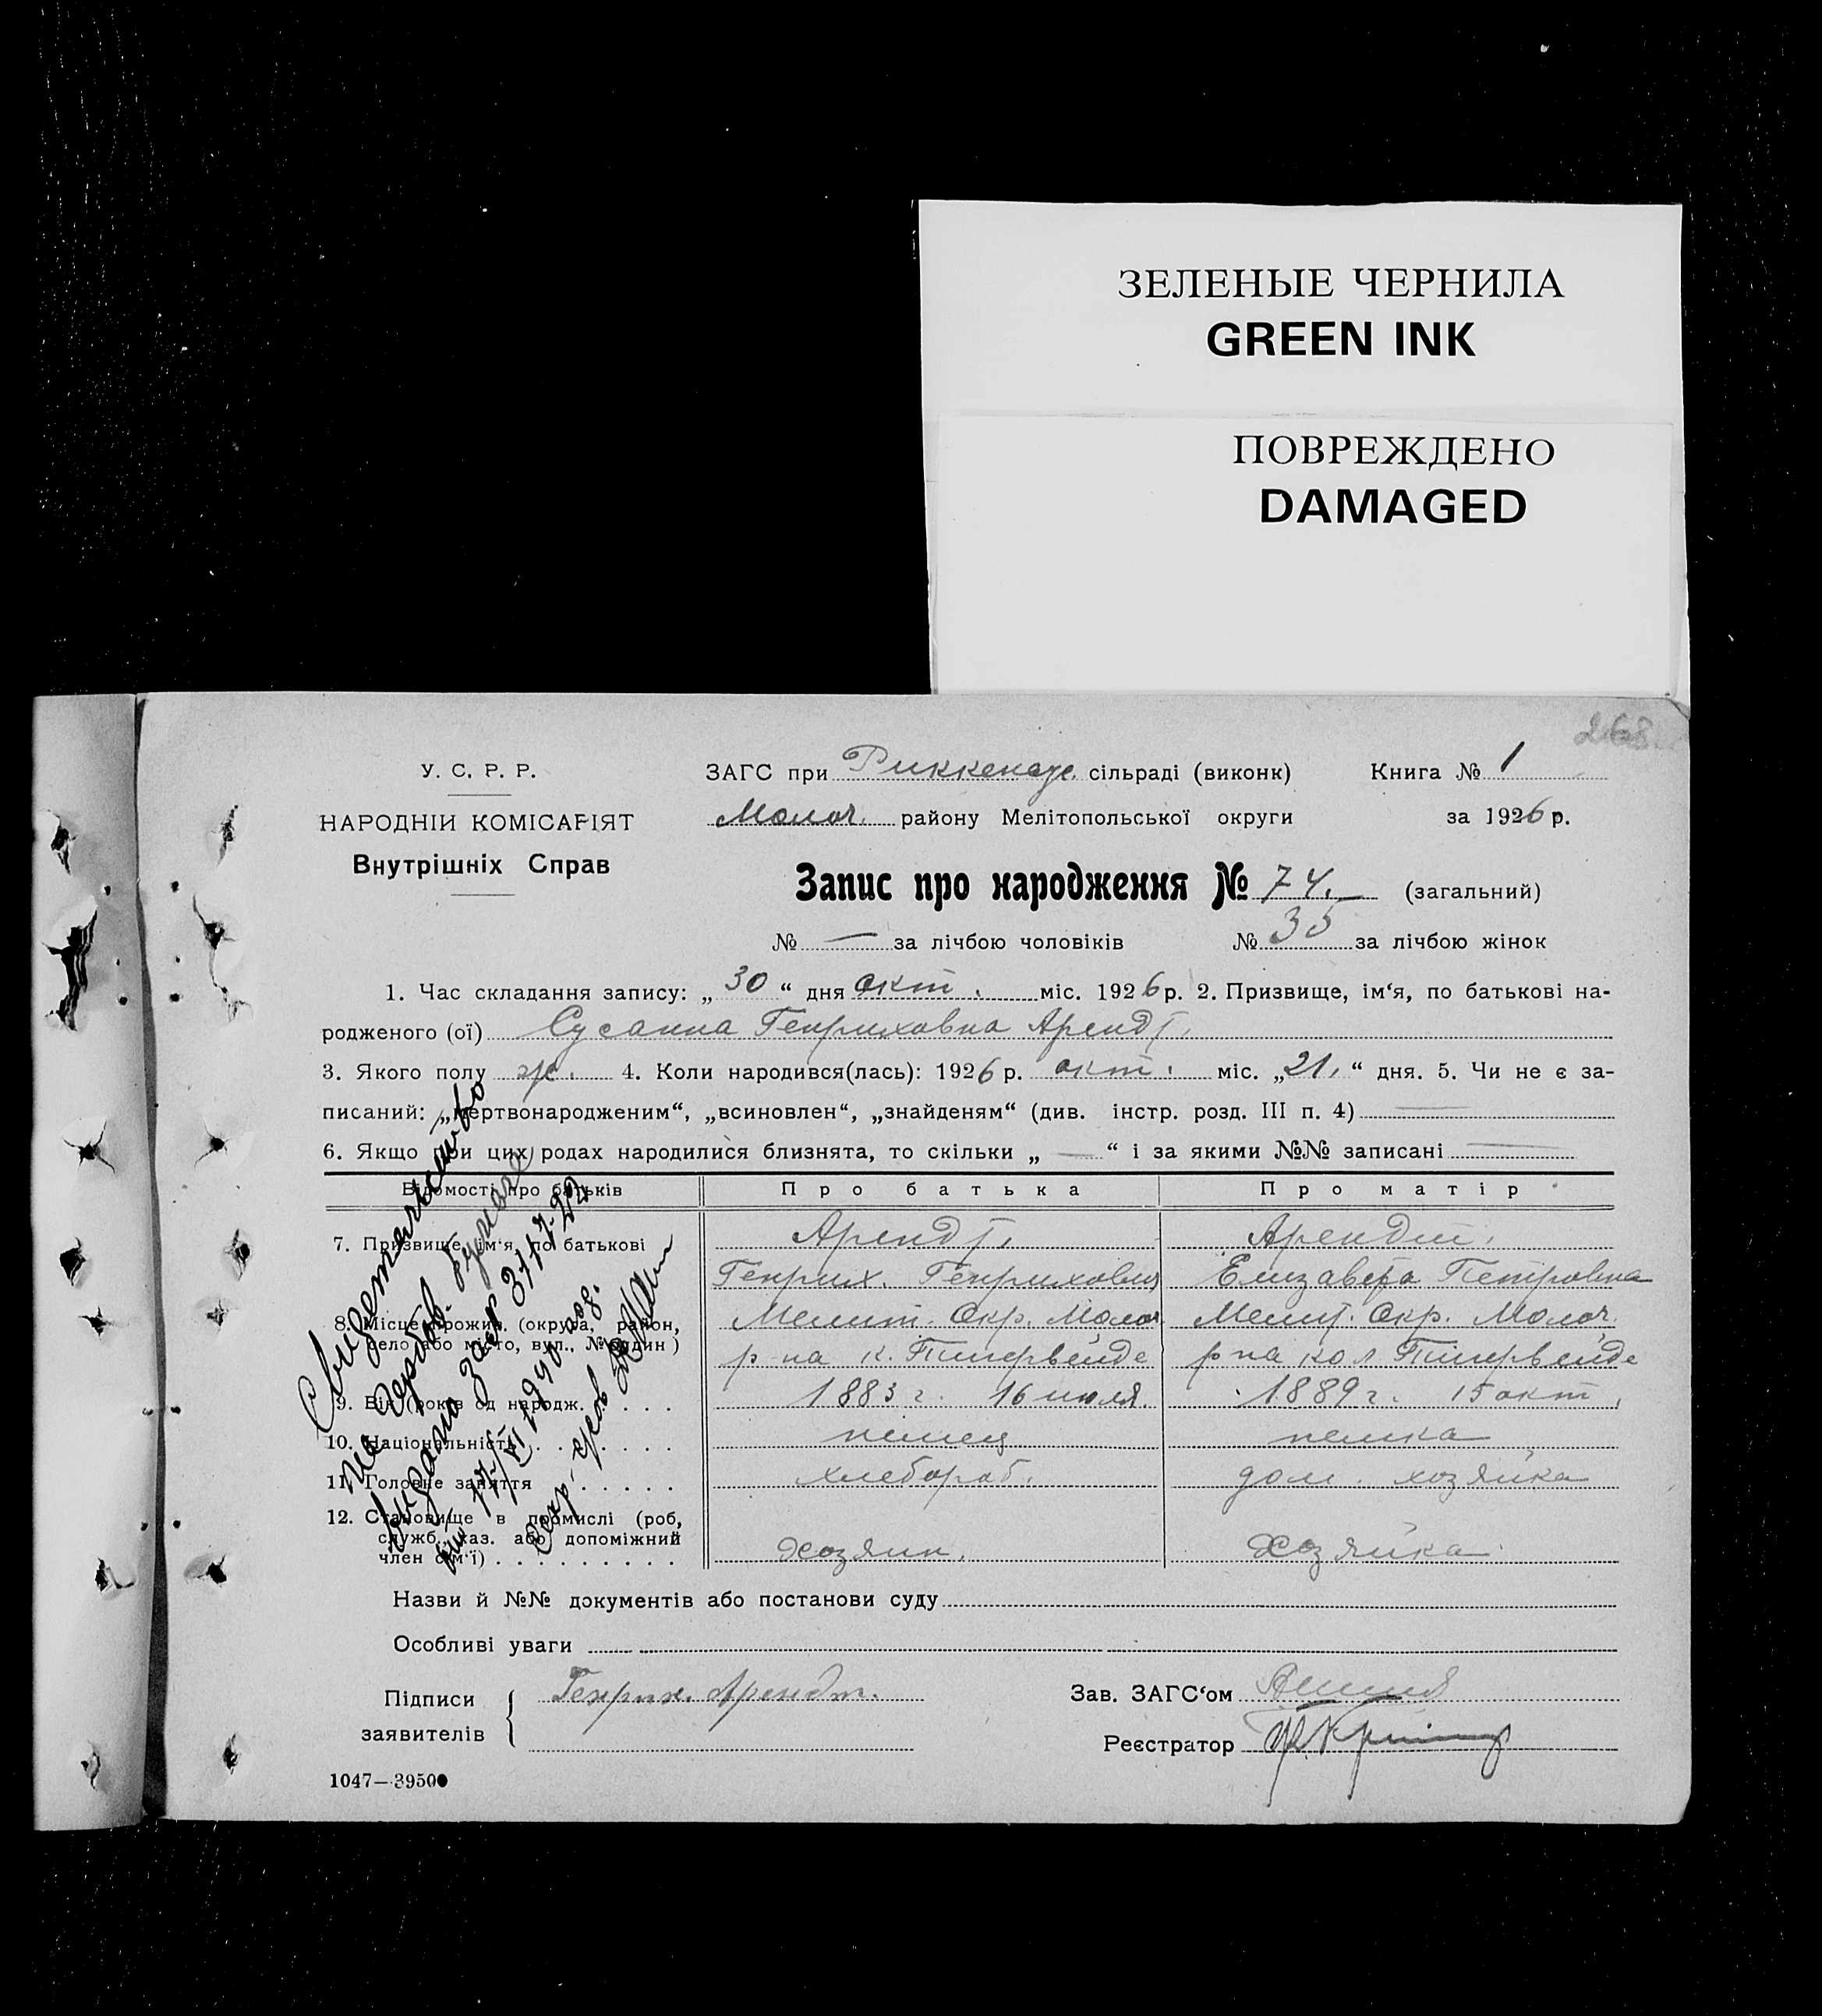 ЗЕЛЕНЫЕ ЧЕРНИЛА
GREEN INK
ПОВРЕЖДЕНО
DAMAGED
268
У. С. Р. Р.
НАРОДНІЙ КОМІСАРІЯТ
Внутрішніх Справ
ЗАГС при Риккенау. сільраді (виконк) Книга № 1
Молоч. району Мелітопольської округи за 1926 р.
Запис про народження № 74. (загальний)
№ — за лічбою чоловіків № 35 за лічбою жінок
1. Час складання запису: „ 30 “ дня окт. міс. 1926 р. 2. Призвище, ім‘я, по батькові на-
родженого (ої) Сусанна Генриховна Арендт.
3. Якого полу ж. 4. Коли народився(лась): 1926 р. окт. міс. „21.“ дня. 5. Чи не є за-
писаний: „мертвонародженим“, „всиновлен“, „знайденям“ (див. інстр. розд. III п. 4) —
6. Якщо при цих родах народилися близнята, то скільки „ — “ і за якими №№ записані —
Відомості про батьків Про батька Про матір
7. Призвище, ім‘я, по батькові Арендт. Арендт.
Генрих. Генрихович Елизавета Петровна
8. Місце прожив. (округа, район, Мелит. Окр. Молоч. Мелит. Окр. Молоч.
село або місто, вул., № будин) р-на к. Тигервейде р-на кол Тигервейде
9. Вік (років од народж. . . . . . 1883 г. 16 июля. 1889 г. 15 окт.
10. Національність . . . . . . немец немка
11. Головне заняття . . . . . хлебороб. дом. хозяйка
12. Становище в промислі (роб,
служб., хаз. або допоміжний
член сім‘ї) . . . . . . . . . хозяин. Хозяйка
Свидетельство
на гербов. бумаге
выдано за №
17/VI 1940 год.
Назви й №№ документів або постанови суду
Особливі уваги
Підписи Генрих. Арендт. Зав. ЗАГС‘ом
заявителів Реєстратор
1047—39500